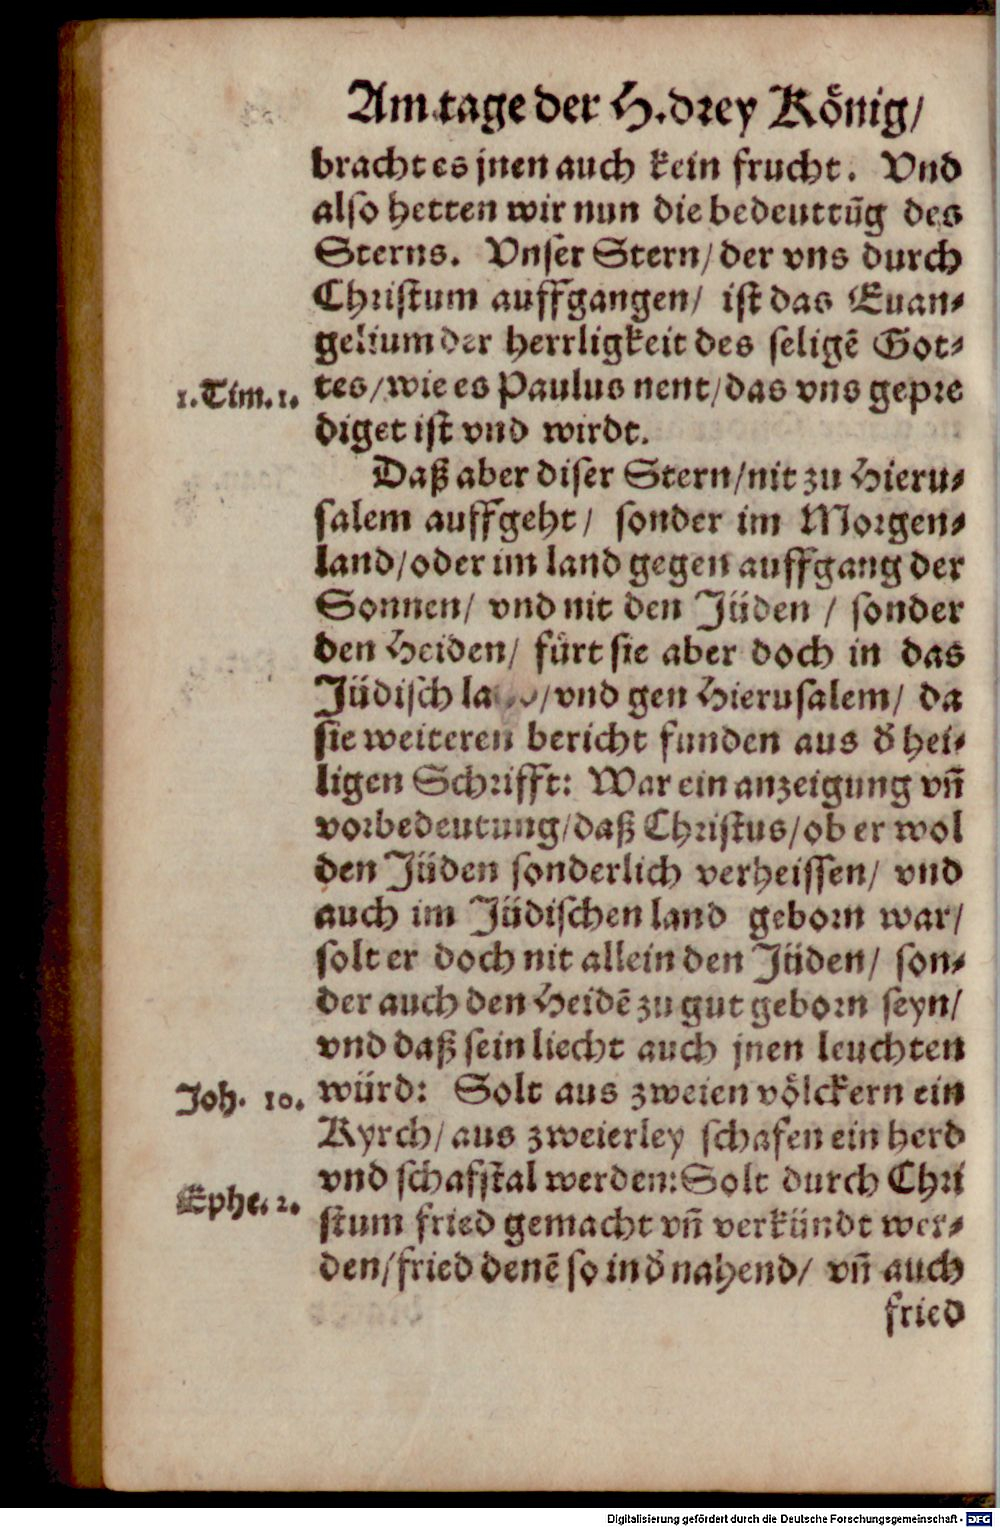 Am tage der H. drey König/
bracht es jnen auch kein frucht. Vnd
also hetten wir nun die bedeuttūg des
Sterns. Vnser Stern/ der vns durch
Christum auffgangen/ ist das Euan-
gelium der herrligkeit des seligē Got-
1. Tim. 1.
tes/ wie es Paulus nent/ das vns gepre
diget ist vnd wirdt.
Daß aber diser Stern/ nit zu Hieru-
salem auffgeht/ sonder im Morgen-
land/ oder im land gegen auffgang der
Sonnen/ vnd nit den Jüden / sonder
den Heiden/ fürt sie aber doch in das
Jüdisch /vnd gen Hierusalem/ da
sie weiteren bericht funden aus d̄ hei-
ligen Schrifft: War ein anzeigung vn̄
vorbedeutung/ daß Christus/ ob er wol
den Jüden sonderlich verheissen/ vnd
auch im Jüdischen land geborn war/
solt er doch nit allein den Jüden/ son-
der auch den Heidē zu gut geborn seyn/
vnd daß sein liecht auch jnen leuchten
Joh. 10.
würd: Solt aus zweien völckern ein
Kyrch/ aus zweierley schafen ein herd
vnd schafstal werden: Solt durch Chri
Ephe. 2.
stum fried gemacht vn̄ verkündt wer-
den/ fried denē so in d̄ nahend/ vn̄ auch
fried
Digitalisierung gefördert durch die Deutsche Forschungsgemeinschaft - DFG